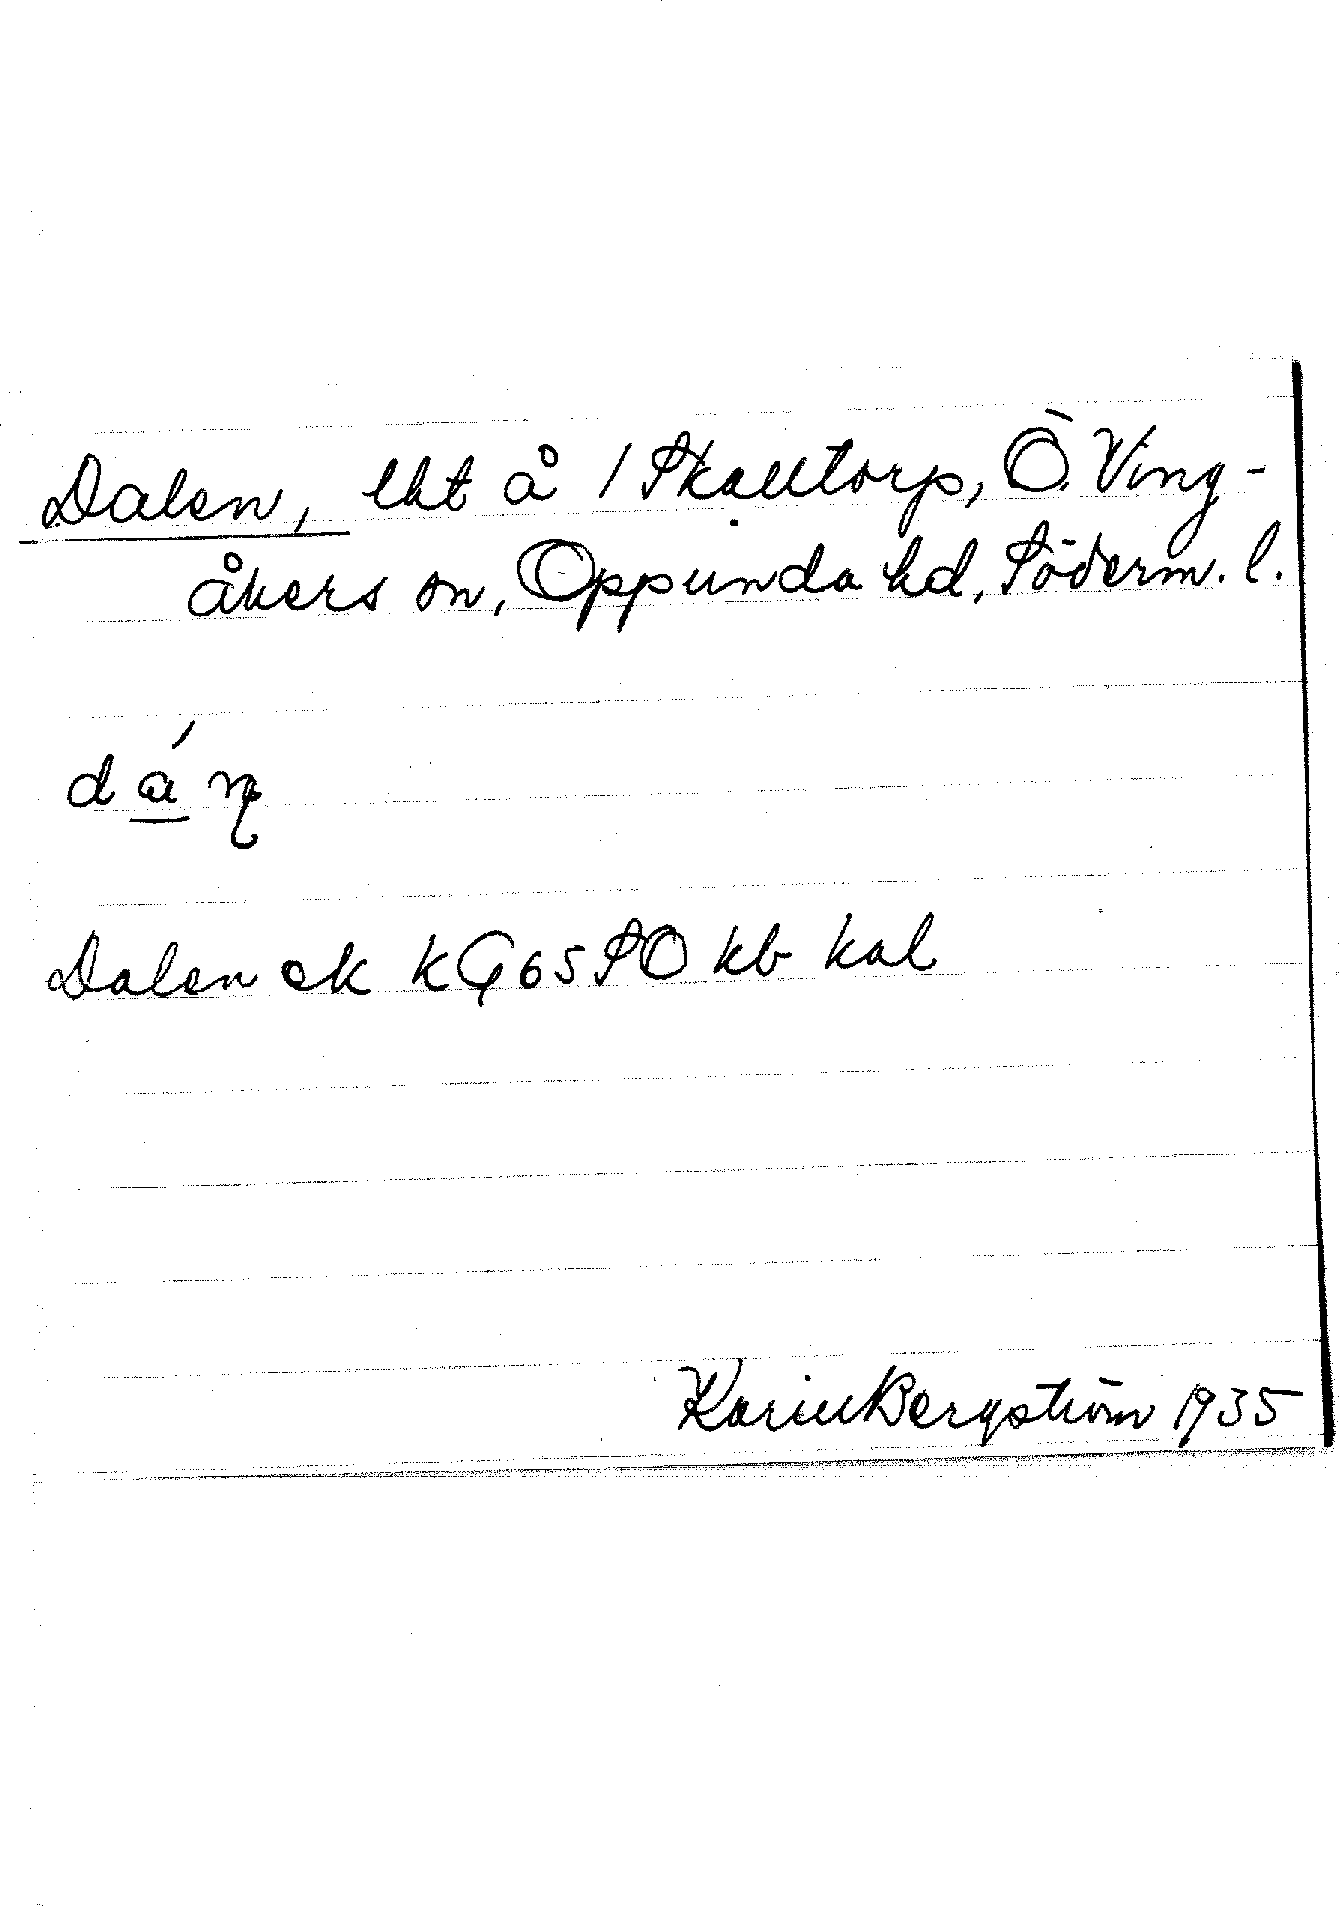 Dalen, lht å 1 Skalltorp, Ö. Ving-
åkers sn, Oppunda hd, Söderm. l.
dá̲n̥
Dalen ek kG65SO kb kal
Karin Bergström 1935